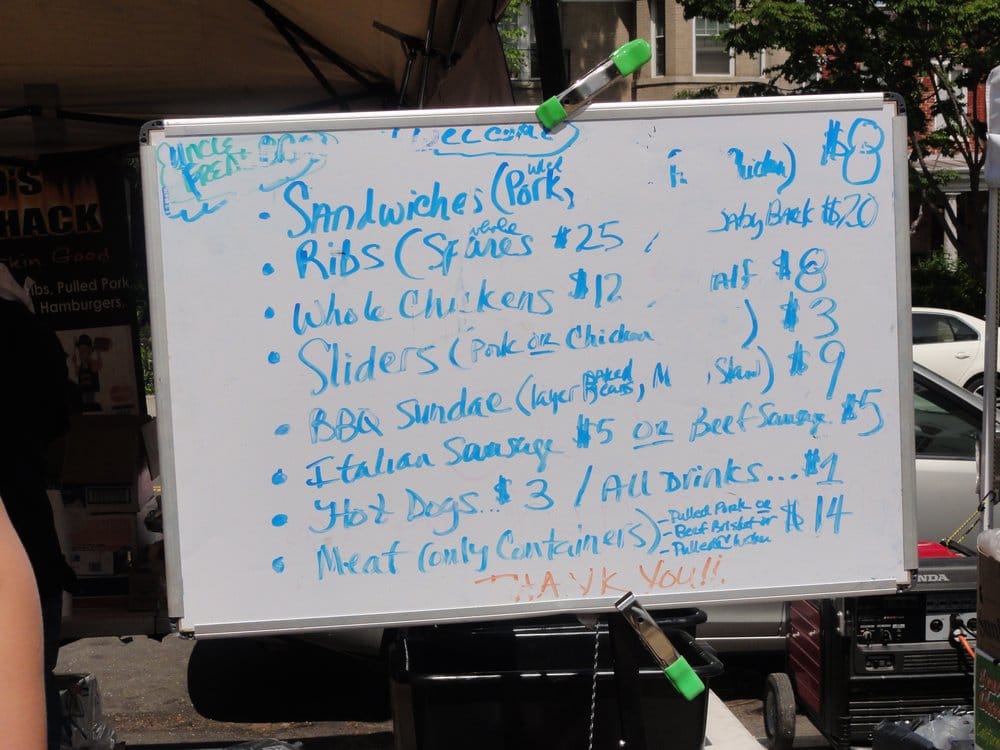 UNCLE
FRED
Sandwiches (Pork, Chicken) $8
Ribs (Spares whole $25 / BabyBack $20
Whole Chickens $12 alf $8
Sliders (Pork or Chicken ) $3
BBQ Sundae (layer Baked Beans, M , Slaw) $9
Italian Sausage $5 or Beef Sausage $5
Hot Dogs... $3 / All Drinks... $1
Meat (only Containers) $14
- Pulled Pork or
- Beef Brisket or
- Pulled Chicken
THANK YOU!!
HACK
Good
ibs, Pulled Pork
Hamburgers,
NDA